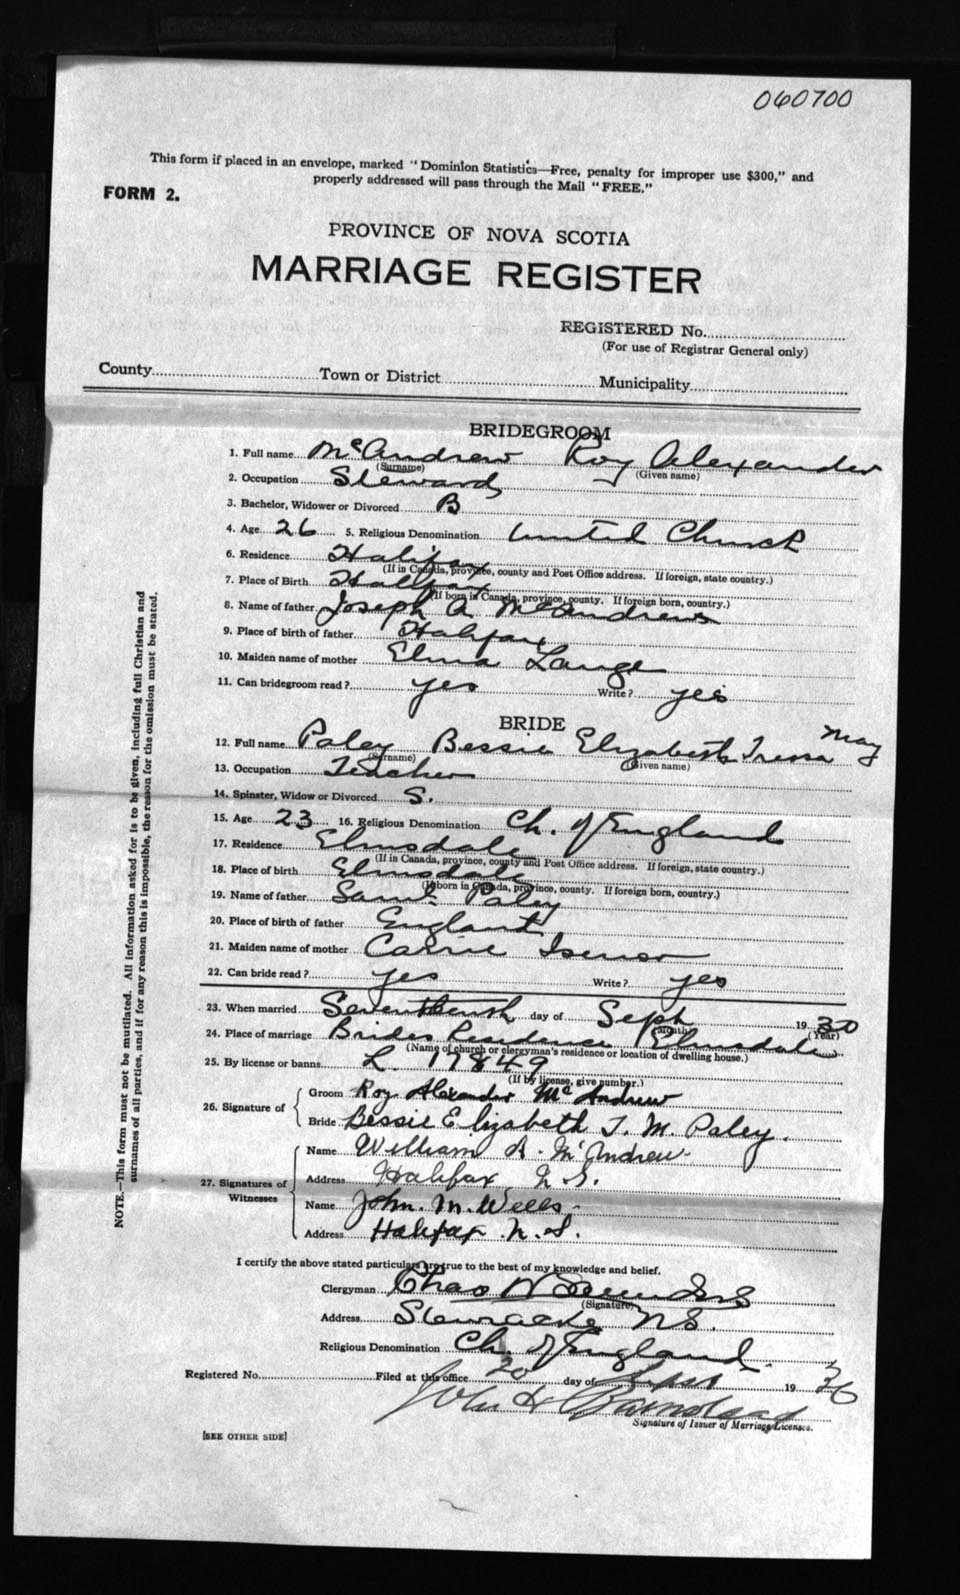 060700
This form if placed in an envelope, marked "Dominion Statistics—Free, penalty for improper use $300," and
properly addressed will pass through the Mail "FREE."
FORM 2.
PROVINCE OF NOVA SCOTIA
MARRIAGE REGISTER
REGISTERED No.
(For use of Registrar General only)
County Town or District Municipality
BRIDEGROOM
1. Full name McAndrew Roy Alexander
(Surname) (Given name)
2. Occupation Steward
3. Bachelor, Widower or Divorced B
4. Age 26 5. Religious Denomination United Church
6. Residence Halifax
(If in Canada, province, county and Post Office address. If foreign, state country.)
7. Place of Birth Halifax
(If born in Canada, province, county. If foreign born, country.)
8. Name of father Joseph A McAndrew
9. Place of birth of father Halifax
10. Maiden name of mother Elma Lange
11. Can bridegroom read? yes Write? yes
BRIDE
12. Full name Paley Bessie Elizabeth Tressa May
(Surname) (Given name)
13. Occupation Teacher
14. Spinster, Widow or Divorced S.
15. Age 23 16. Religious Denomination Ch. of England
17. Residence Elmsdale
(If in Canada, province, county and Post Office address. If foreign, state country.)
18. Place of birth Elmsdale
(If born in Canada, province, county. If foreign born, country.)
19. Name of father Saml Paley
20. Place of birth of father England
21. Maiden name of mother Carrie Isenor
22. Can bride read? yes Write? yes
23. When married Seventeenth day of Sept 1930
(Month) (Year)
24. Place of marriage Brides Residence Elmsdale
(Name of church or clergyman's residence or location of dwelling house.)
25. By license or banns L. 17849
(If by license, give number.)
26. Signature of Groom Roy Alexander McAndrew
Bride Bessie Elizabeth T. M. Paley.
27. Signatures of Witnesses Name William A. McAndrew
Address Halifax N.S.
Name John. M. Wells.
Address Halifax N.S.
I certify the above stated particulars are true to the best of my knowledge and belief.
Clergyman Chas W Saunders
(Signature)
Address Stewiacke NS.
Religious Denomination Ch. of England.
Registered No. Filed at this office 20 day of Sept 1930
John H
Signature of Issuer of Marriage Licenses.
[SEE OTHER SIDE]
NOTE.—This form must not be mutilated. All information asked for is to be given, including full Christian and
surnames of all parties, and if for any reason this is impossible, the reason for the omission must be stated.